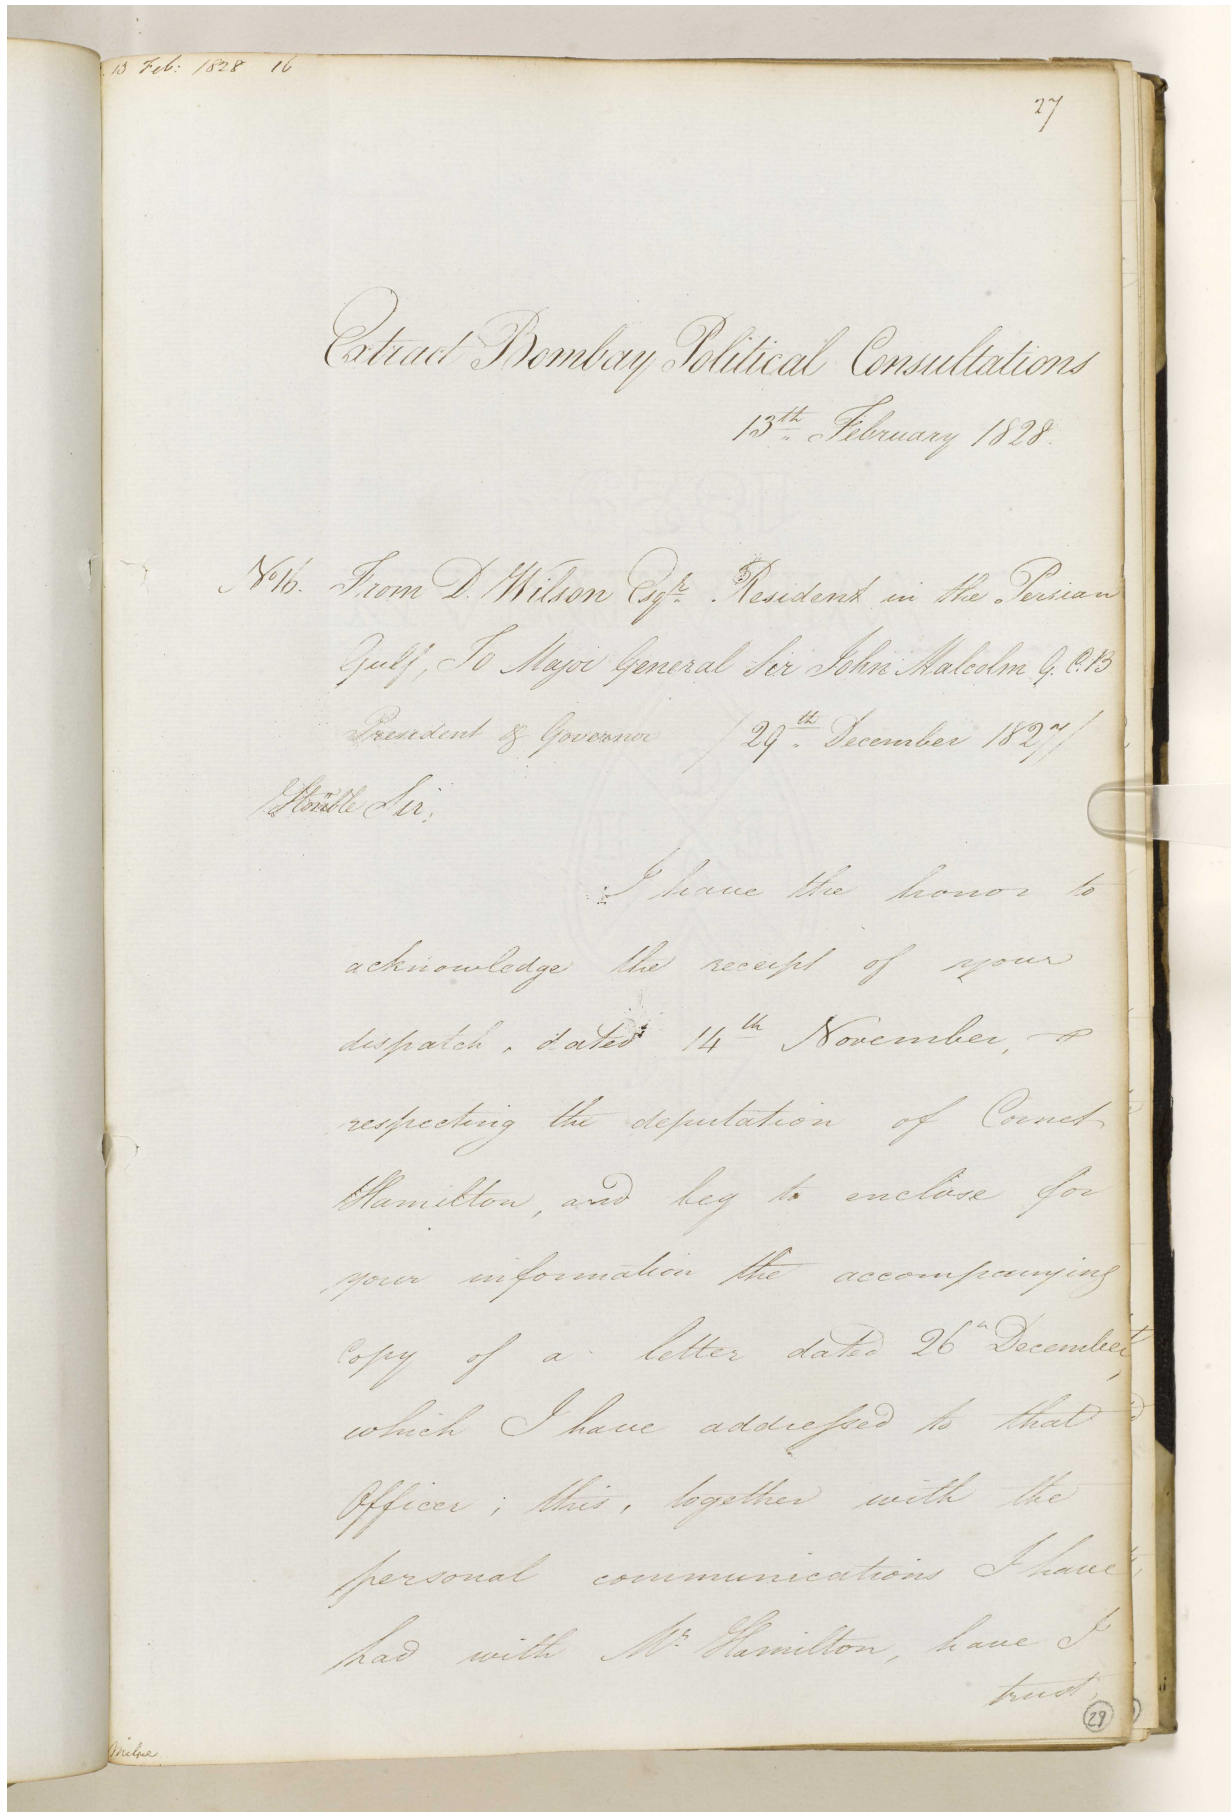 13 Feb: 1828 16
27
Extract Bombay Political Consultations
13th February 1828.
No 16. From D. Wilson Esqr. Resident in the Persian
Gulf, To Major General Sir John Malcolm G.C.B
President & Governor /29th December 1827/
Honble Sir,
I have the honor to
acknowledge the receipt of your
dispatch, dated 14th November,
respecting the deputation of Cornet
Hamilton, and beg to enclose for
your information the accompanying
copy of a letter dated 26th December,
which I have addressed to that
Officer; this, together with the
personal communications I have
had with Mr Hamilton, have I
trust,
29
Milne